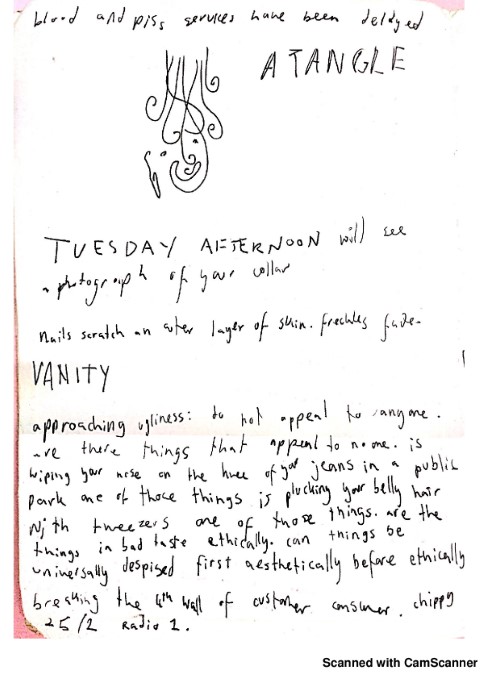 blood and piss services have been delayed
A TANGLE
TUESDAY AFTERNOON will see
a photograph of your collar
nails scratch an outer layer of skin. freckles fade.
VANITY
approaching ugliness: to not appeal to anyone.
are there things that appeal to no one. is
wiping your nose on the knee of your jeans in a public
park one of those things is plucking your belly hair
with tweezers one of those things. are the
things in bad taste ethically. can things be
universally despised first aesthetically before ethically
breaking the 4th wall of customer consumer. chippy
25/2 Radio 1.
Scanned with CamScanner